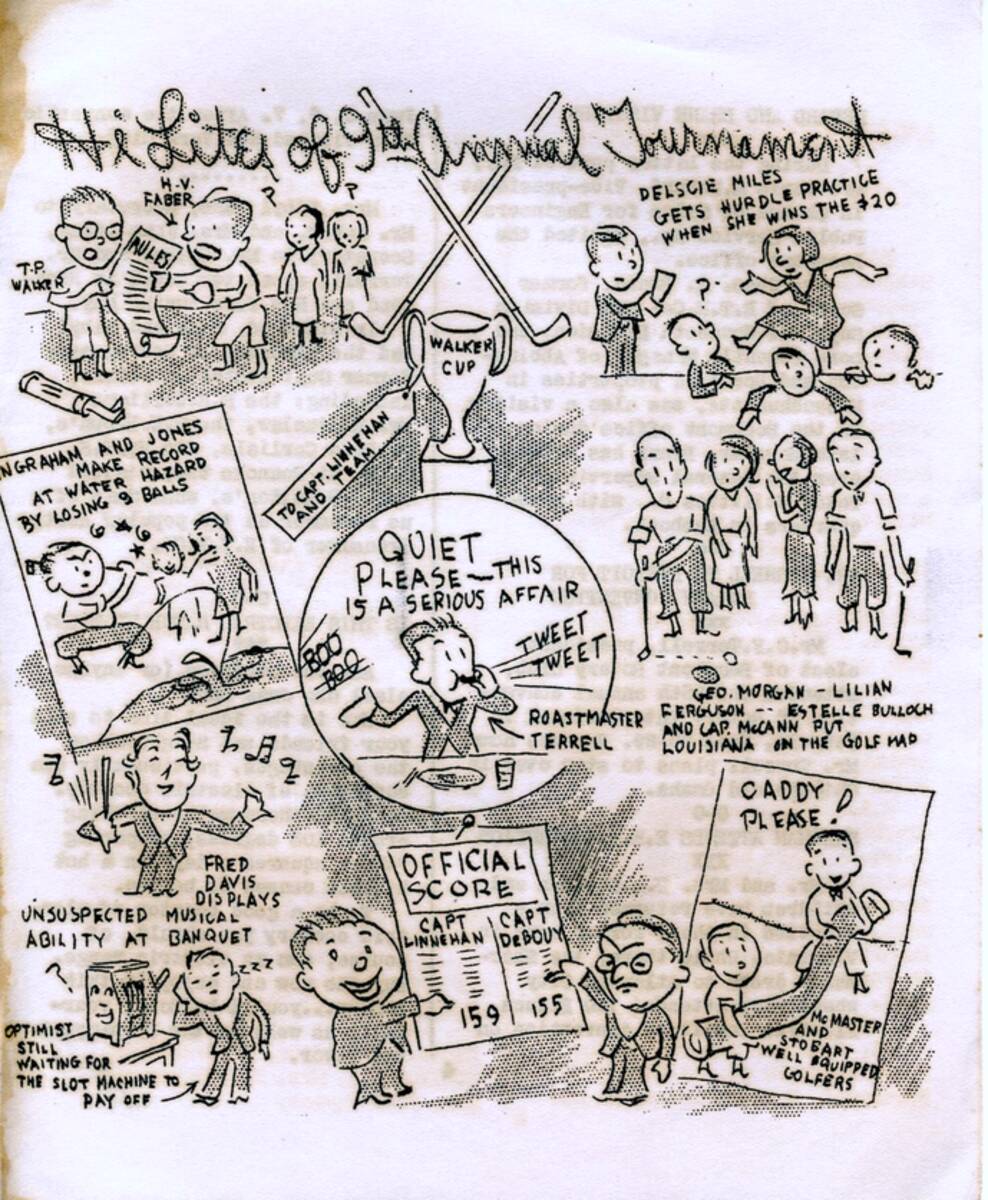 Hi Lites of 9th Annual Tournament
H.V.
FABER
?
?
RULES
T.P.
WALKER
DELSCIE MILES
GETS HURDLE PRACTICE
WHEN SHE WINS THE $20
?
WALKER
CUP
TO CAPT. LINNEHAN
AND TEAM
INGRAHAM AND JONES
MAKE RECORD
AT WATER HAZARD
BY LOSING 9 BALLS
QUIET
PLEASE — THIS
IS A SERIOUS AFFAIR
BOO
BOO
TWEET
TWEET
ROASTMASTER
TERRELL
GEO. MORGAN - LILIAN
FERGUSON -- ESTELLE BULLOCH
AND CAP. McCANN PUT
LOUISIANA ON THE GOLF MAP
FRED
DAVIS
DISPLAYS
UNSUSPECTED MUSICAL
ABILITY AT BANQUET
?
ZZZ
OPTIMIST
STILL
WAITING FOR
THE SLOT MACHINE TO
PAY OFF
OFFICIAL
SCORE
CAPT
LINNEHAN
159
CAPT
DeBOUY
155
CADDY
PLEASE!
McMASTER
AND
STOBART
WELL EQUIPPED
GOLFERS